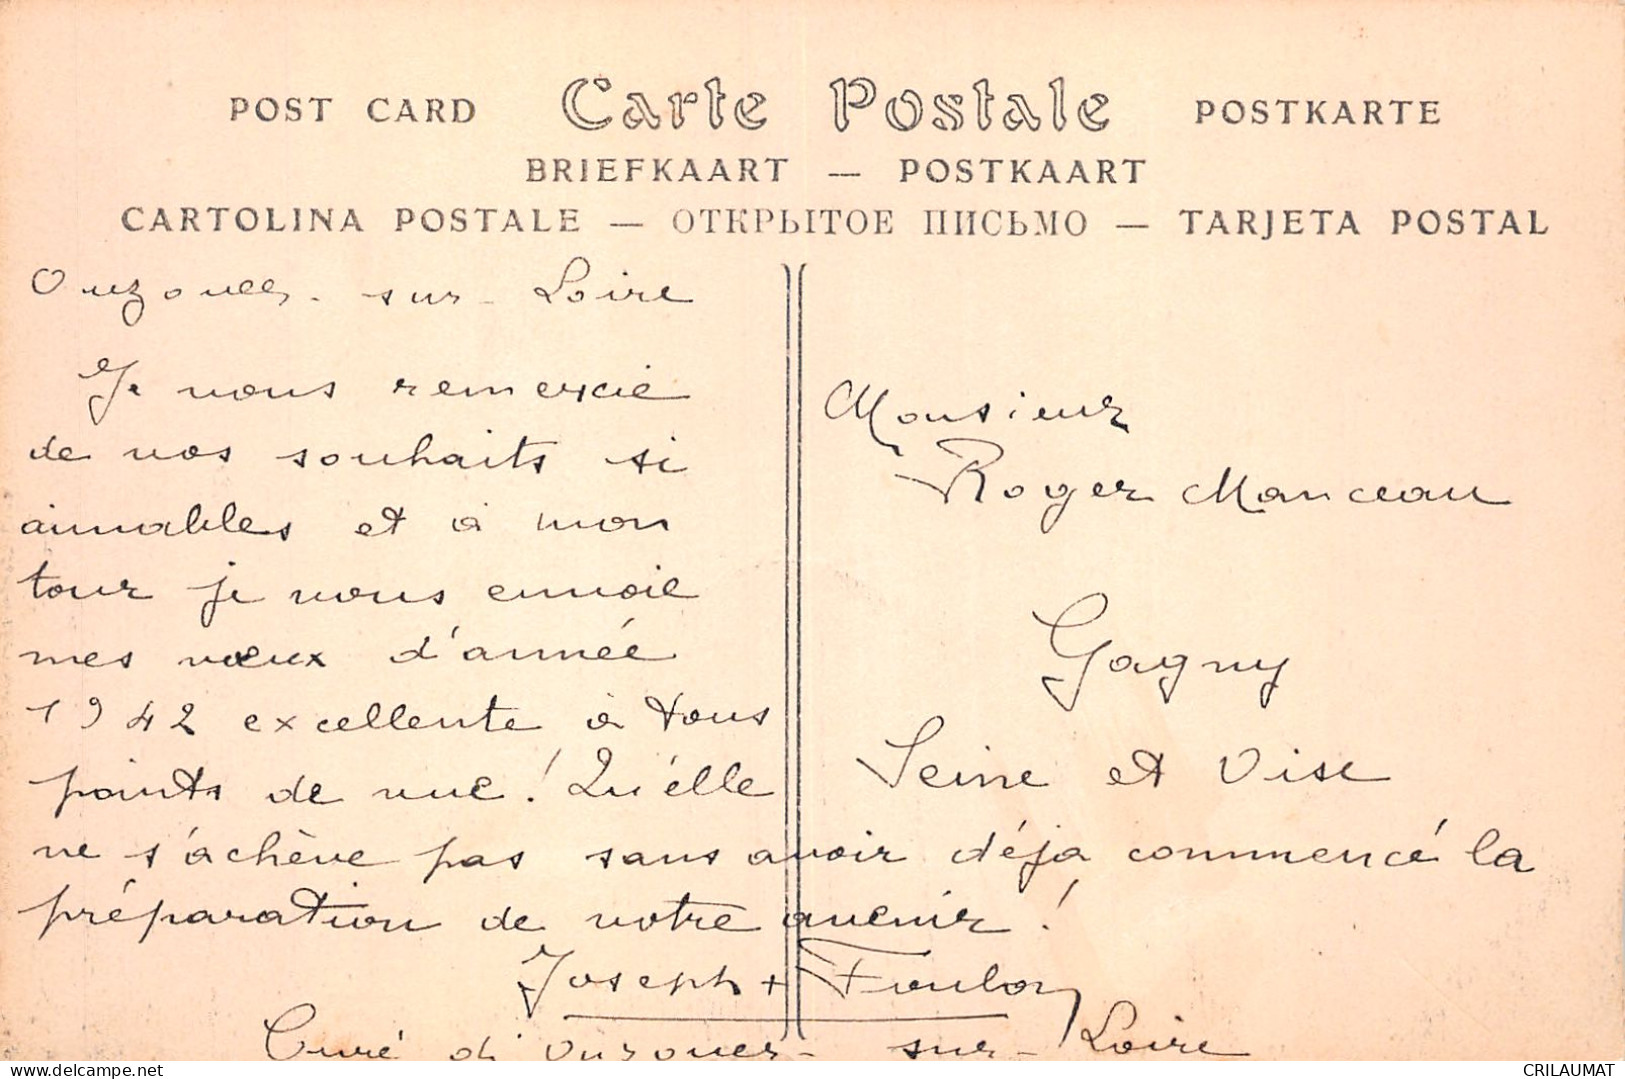 POST CARD Carte Postale POSTKARTE
BRIEFKAART — POSTKAART
CARTOLINA POSTALE — ОТКРЫТОЕ ПИСЬМО — TARJETA POSTAL
Ouzouer-sur-Loire
Je vous remercie
de vos souhaits si
aimables et à mon
tour je vous envoie
mes vœux d'année
1942 excellente à tous
points de vue ! Qu'elle
ne s'achève pas sans avoir déjà commencé la
préparation de votre avenir !
Joseph + Foulon
Curé d'Ouzouer-sur-Loire
Monsieur
Roger Manceau
Gagny
Seine et Oise
CRILAUMAT
delcampe.net